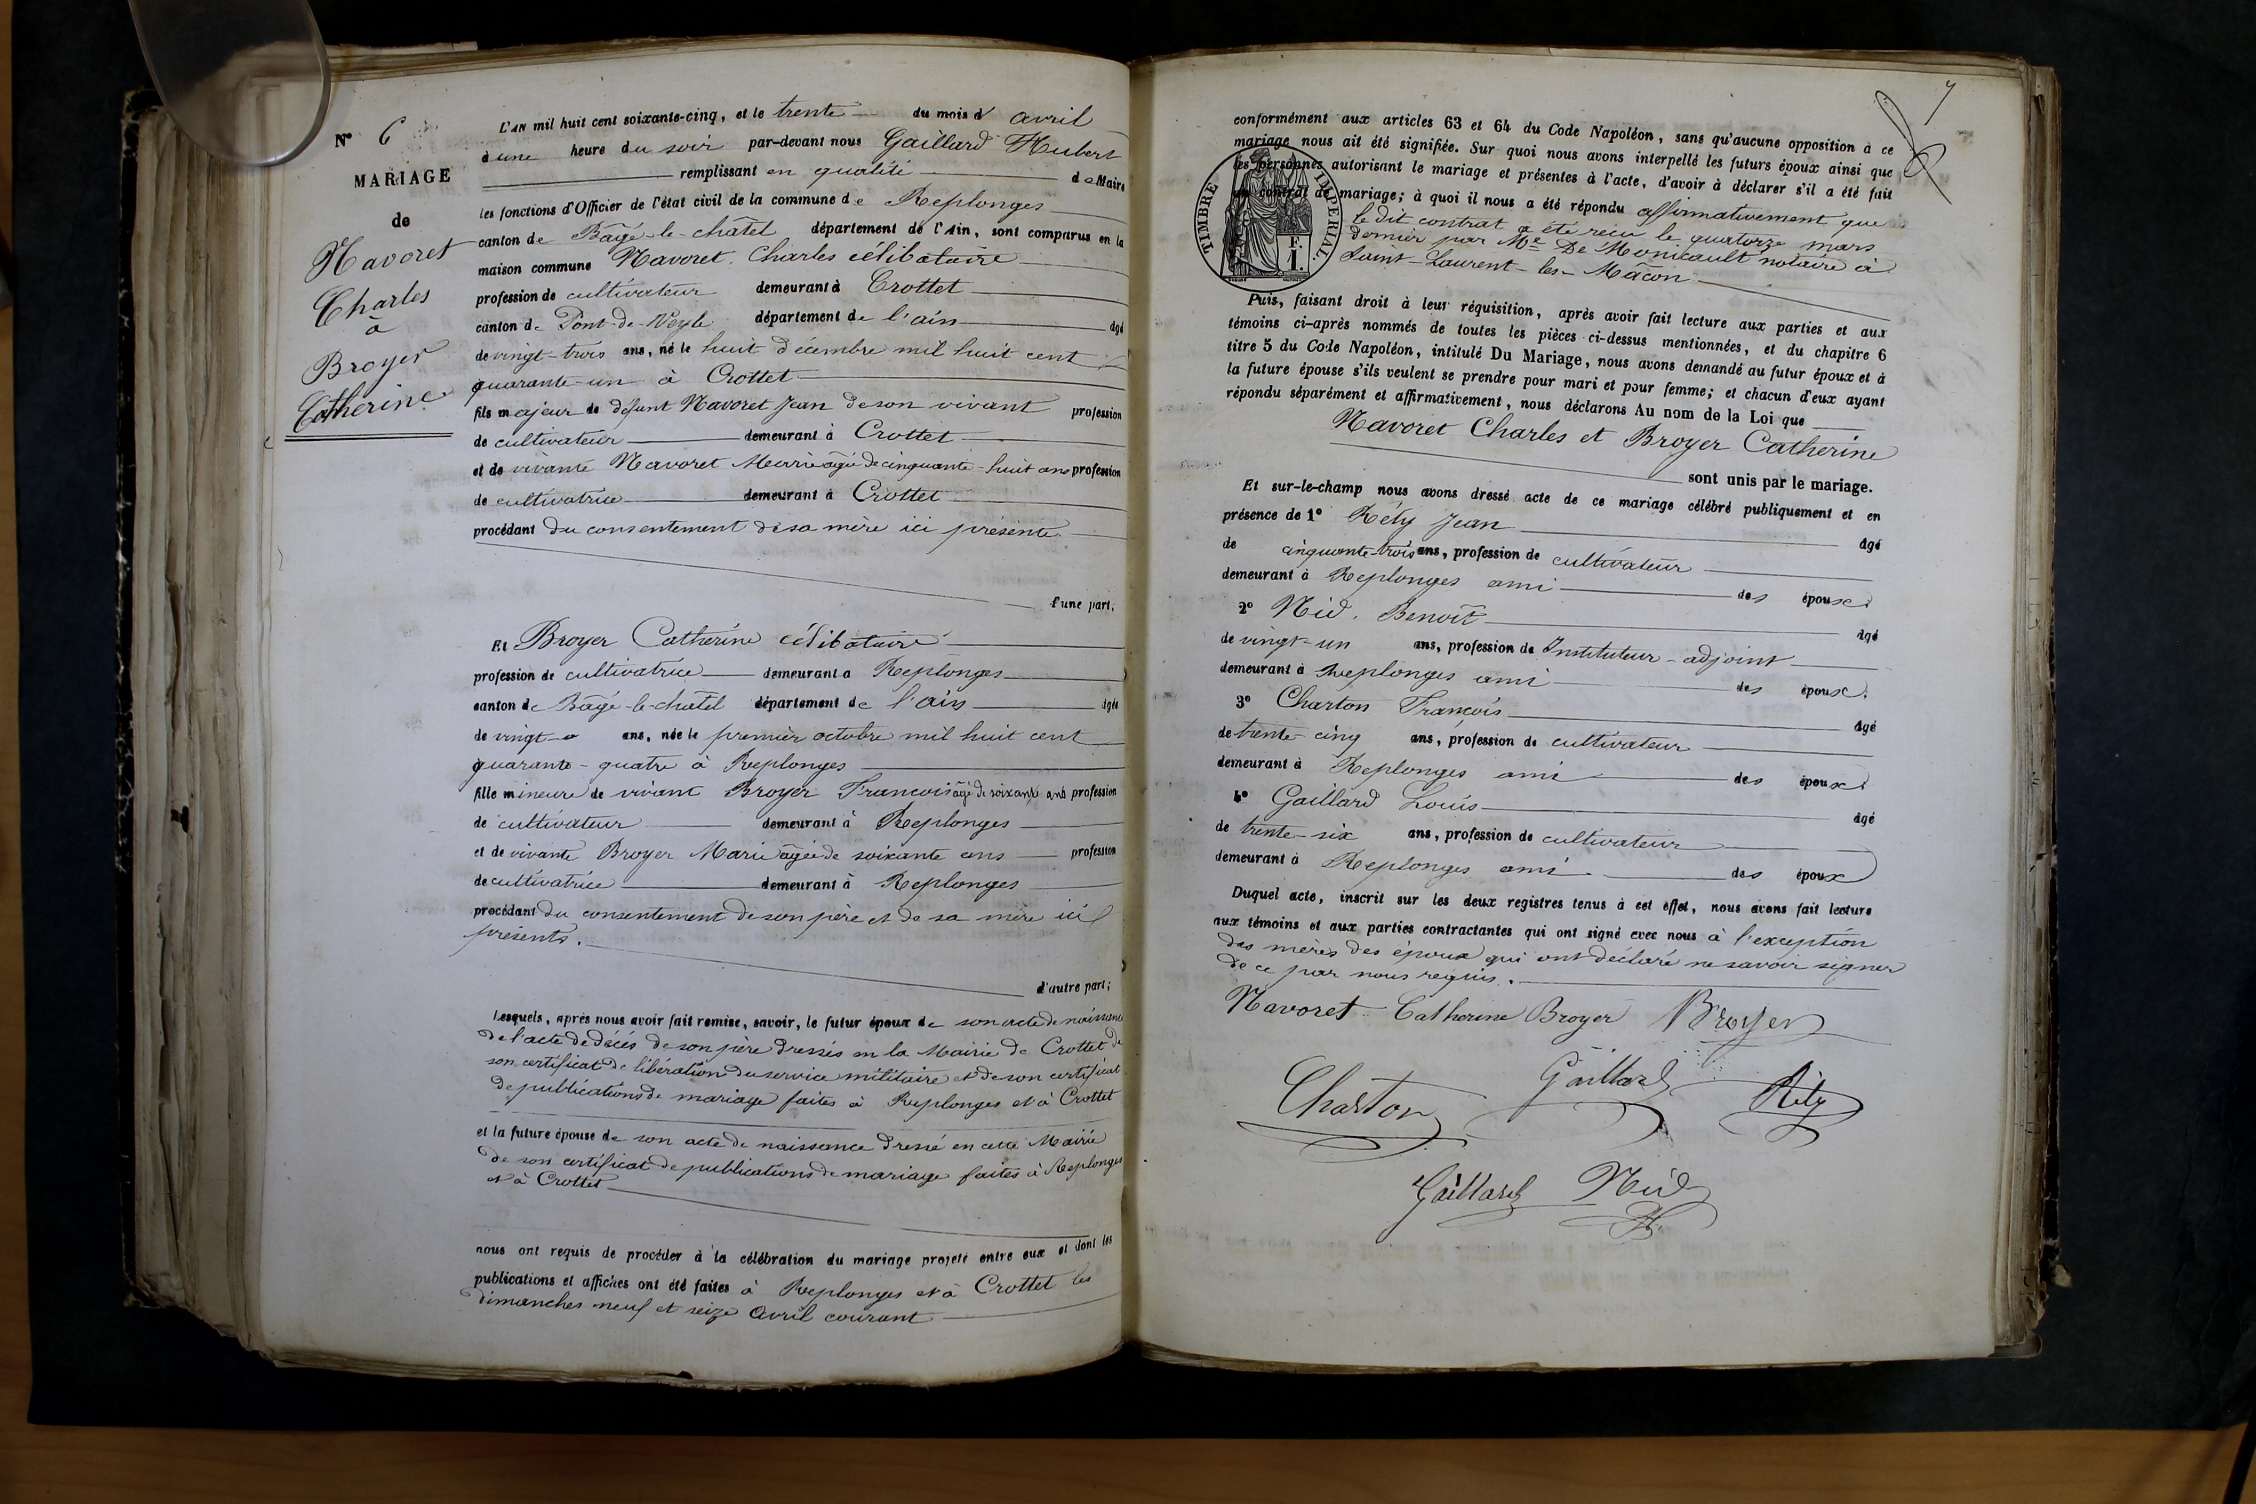 N° 6
MARIAGE
de
Navoret
Charles
à
Broyer
Catherine
L'AN mil huit cent soixante-cinq, et le trente du mois d' avril
d'une heure du soir par-devant nous Gaillard Hubert
remplissant en qualité de Maire
les fonctions d'Officier de l'état civil de la commune de Replonges
canton de Bâgé-le-châtel département de l'Ain, sont comparus en la
maison commune Navoret Charles célibataire
profession de cultivateur demeurant à Crottet
canton de Pont-de-Veyle département de l'ain âgé
de vingt-trois ans, né le huit décembre mil huit cent
quarante-un à Crottet
fils majeur de défunt Navoret Jean de son vivant profession
de cultivateur demeurant à Crottet
et de vivante Navoret Marie âgée de cinquante-huit ans profession
de cultivatrice demeurant à Crottet
procédant du consentement de sa mère ici présente
d'une part.
Et Broyer Catherine célibataire
profession de cultivatrice demeurant à Replonges
canton de Bâgé-le-châtel département de l'ain âgée
de vingt ans, née le premier octobre mil huit cent
quarante-quatre à Replonges
fille mineure de vivant Broyer François âgé de soixante ans profession
de cultivateur demeurant à Replonges
et de vivante Broyer Marie âgée de soixante ans profession
de cultivatrice demeurant à Replonges
procédant du consentement de son père et de sa mère ici
présents.
d'autre part;
Lesquels, après nous avoir fait remise, savoir, le futur époux de son acte de naissance
de l'acte de décès de son père dressés en la Mairie de Crottet de
son certificat de libération du service militaire et de son certificat
de publications de mariage faites à Replonges et à Crottet
et la future épouse de son acte de naissance dressé en cette Mairie
de son certificat de publications de mariage faites à Replonges
et à Crottet
nous ont requis de procéder à la célébration du mariage projeté entre eux et dont les
publications et affiches ont été faites à Replonges et à Crottet les
dimanches neuf et seize avril courant
7
conformément aux articles 63 et 64 du Code Napoléon, sans qu'aucune opposition à ce
mariage nous ait été signifiée. Sur quoi nous avons interpellé les futurs époux ainsi que
les personnes autorisant le mariage et présentes à l'acte, d'avoir à déclarer s'il a été fait
un contrat de mariage; à quoi il nous a été répondu affirmativement que
le dit contrat a été reçu le quatorze mars
dernier par Me De Monicault notaire à
Saint-Laurent-les-Mâcon
TIMBRE IMPERIAL.
F.
1.
Puis, faisant droit à leur réquisition, après avoir fait lecture aux parties et aux
témoins ci-après nommés de toutes les pièces ci-dessus mentionnées, et du chapitre 6
titre 5 du Code Napoléon, intitulé Du Mariage, nous avons demandé au futur époux et à
la future épouse s'ils veulent se prendre pour mari et pour femme; et chacun d'eux ayant
répondu séparément et affirmativement, nous déclarons Au nom de la Loi que
Navoret Charles et Broyer Catherine
sont unis par le mariage.
Et sur-le-champ nous avons dressé acte de ce mariage célébré publiquement et en
présence de 1° Réty Jean âgé
de cinquante-trois ans, profession de cultivateur
demeurant à Replonges ami des époux.
2° Nid Benoît âgé
de vingt-un ans, profession de Instituteur-adjoint
demeurant à Replonges ami des époux.
3° Charton François âgé
de trente-cinq ans, profession de cultivateur
demeurant à Replonges ami des époux.
4° Gaillard Louis âgé
de trente-six ans, profession de cultivateur
demeurant à Replonges ami des époux
Duquel acte, inscrit sur les deux registres tenus à cet effet, nous avons fait lecture
aux témoins et aux parties contractantes qui ont signé avec nous à l'exception
des mères des époux qui ont déclaré ne savoir signer
de ce par nous requis.
Navoret Catherine Broyer Broyer
Charton Gaillard Réty
Gaillard Nid